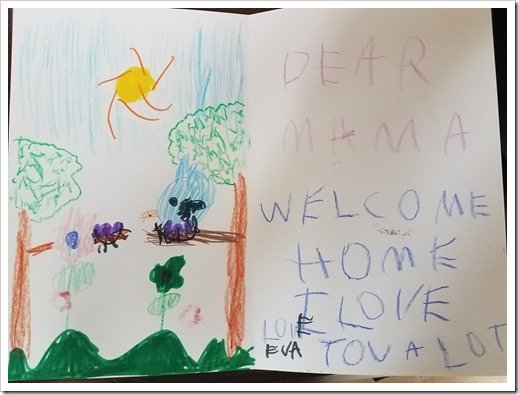 DEAR
MAMA
WELCOME
HOME
I LOVE
TOU A LOT
LOVE
EVA